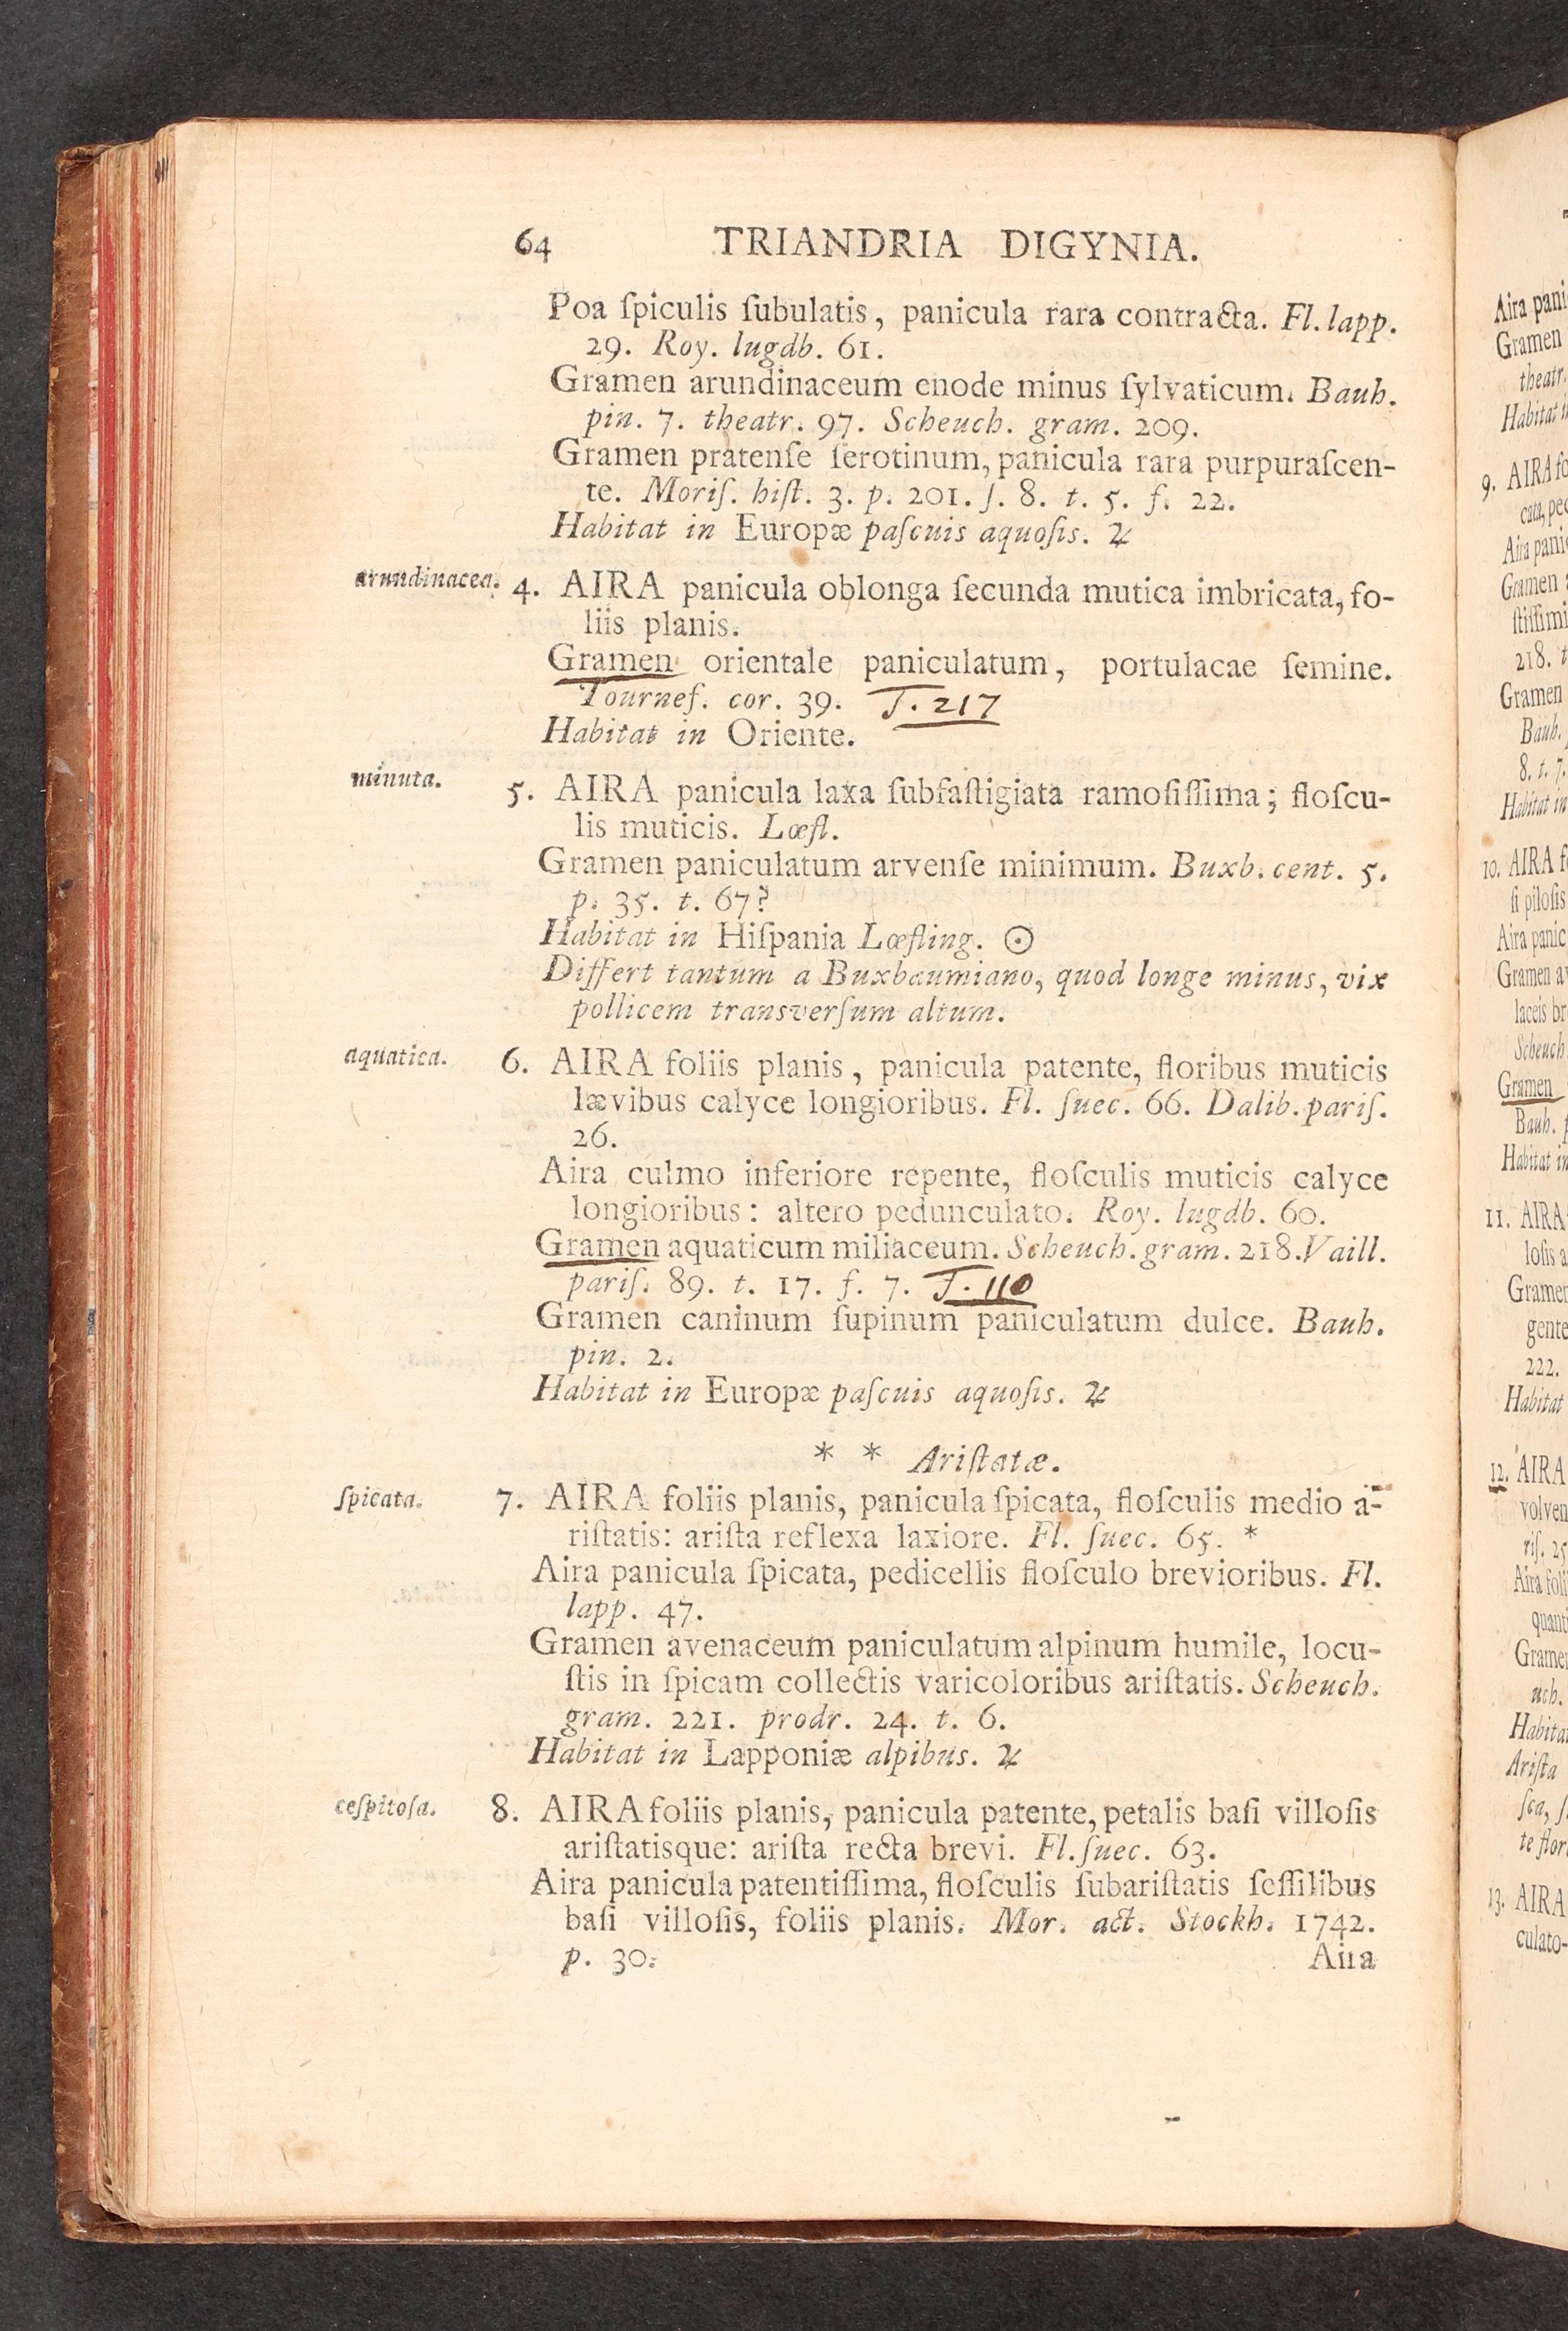 64 TRIANDRIA DIGYNIA.
Poa ſpiculis ſubulatis, panicula rara contracta. Fl. lapp.
29. Roy. lugdb. 61.
Gramen arundinaceum enode minus ſylvaticum. Bauh.
pin. 7. theatr. 97. Scheuch. gram. 209.
Gramen pratenſe ſerotinum, panicula rara purpuraſcen-
te. Moriſ. hiſt. 3. p. 201. ſ. 8. t. 5. f. 22.
Habitat in Europæ paſcuis aquoſis. ♃
arundinacea. 4. AIRA panicula oblonga ſecunda mutica imbricata, fo-
liis planis.
Gramen orientale paniculatum, portulacae ſemine.
Tournef. cor. 39. T. 217
Habitat in Oriente.
minuta. 5. AIRA panicula laxa ſubfaſtigiata ramoſiſſima; floſcu-
lis muticis. Lœfl.
Gramen paniculatum arvenſe minimum. Buxb. cent. 5.
p. 35. t. 67?
Habitat in Hiſpania Lœfling. ☉
Differt tantum a Buxbaumiano, quod longe minus, vix
pollicem transverſum altum.
aquatica. 6. AIRA foliis planis, panicula patente, floribus muticis
lævibus calyce longioribus. Fl. ſuec. 66. Dalib. pariſ.
26.
Aira culmo inferiore repente, floſculis muticis calyce
longioribus: altero pedunculato. Roy. lugdb. 60.
Gramen aquaticum miliaceum. Scheuch. gram. 218. Vaill.
pariſ. 89. t. 17. f. 7. T. 110
Gramen caninum ſupinum paniculatum dulce. Bauh.
pin. 2.
Habitat in Europæ paſcuis aquoſis. ♃
* * Ariſtatæ.
ſpicata. 7. AIRA foliis planis, panicula ſpicata, floſculis medio a-
riſtatis: ariſta reflexa laxiore. Fl. ſuec. 65. *
Aira panicula ſpicata, pedicellis floſculo brevioribus. Fl.
lapp. 47.
Gramen avenaceum paniculatum alpinum humile, locu-
ſtis in ſpicam collectis varicoloribus ariſtatis. Scheuch.
gram. 221. prodr. 24. t. 6.
Habitat in Lapponiæ alpibus. ♃
ceſpitoſa. 8. AIRA foliis planis, panicula patente, petalis baſi villoſis
ariſtatisque: ariſta recta brevi. Fl. ſuec. 63.
Aira panicula patentiſſima, floſculis ſubariſtatis ſeſſilibus
baſi villoſis, foliis planis. Mor. act. Stockh. 1742.
p. 30. Aira
Aira pani
Gramen
theatr.
Habitat
9. AIRA
Aira pani
Gramen
ſtiſſimi
218.
Gramen
Bauh.
8. t. 7.
Habitat in
10. AIRA
ſi piloſis
Aira panic
Gramen
laceis
Scheuch
Gramen
Bauh.
Habitat
11. AIRA
loſis
Gramen
gente
222.
Habitat
12. AIRA
volven
riſ. 25
Aira
quant
Gramen
Habita
Ariſta
13. AIRA
culato-